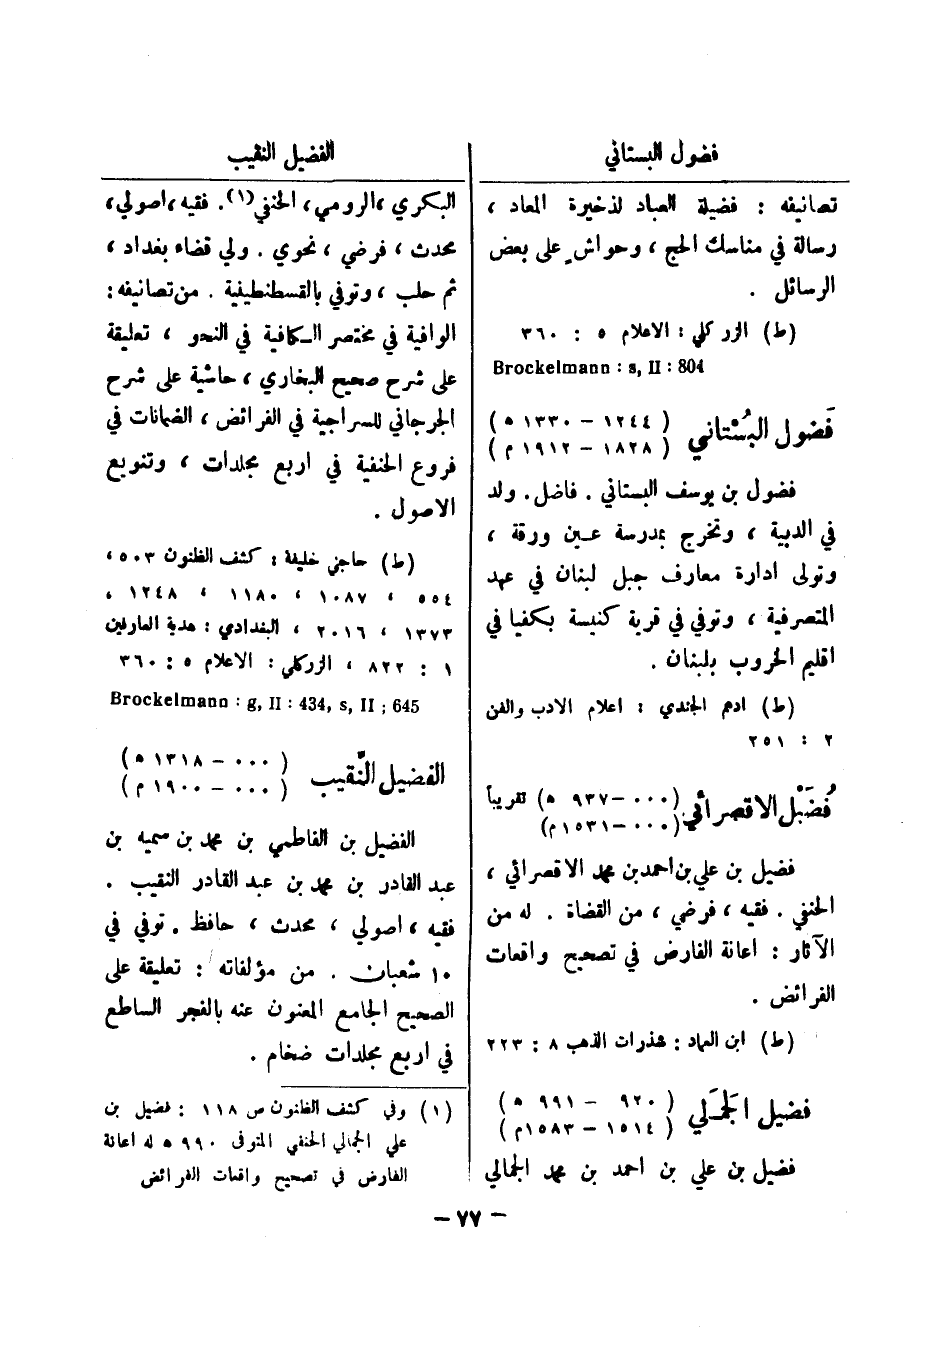 فضول البستاني
تصانيفه : فضيلة العباد لذخيرة المعاد ،
رسالة في مناسك الحج ، وحواشٍ على بعض
الرسائل .
(ط) الزركلي : الاعلام ٥ : ٣٦٠
Brockelmann : s, II : 804
فَضول البُسْتاني ( ١٢٤٤ – ١٣٣٠ ه )
( ١٨٢٨ – ١٩١٢ م )
فضول بن يوسف البستاني . فاضل. ولد
في الدبية ، وتخرج بمدرسة عين ورقة ،
وتولى ادارة معارف جبل لبنان في عهد
المتصرفية ، وتوفي في قرية كنيسة بكفيا في
اقليم الخروب بلبنان .
(ط) ادهم الجندي : اعلام الادب والفن
٢ : ٢٥١
فُضَيْل الاقصرائي (٠٠٠ – ٩٣٧ ه) تقريباً
(٠٠٠ – ١٥٣١م)
فضيل بن علي بن احمد بن محمد الاقصرائي ،
الحنفي . فقيه ، فرضي ، من القضاة . له من
الآثار : اعانة الفارض في تصحيح واقعات
الفرائض .
(ط) ابن العماد : شذرات الذهب ٨ : ٢٢٣
فضيل الجَمَلي ( ٩٢٠ – ٩٩١ ه )
( ١٥١٤ – ١٥٨٣م )
فضيل بن علي بن احمد بن محمد الجمالي
الفضيل النقيب
البكري ، الرومي ، الحنفي (١). فقيه ، اصولي ،
محدث ، فرضي ، نحوي . ولي قضاء بغداد ،
ثم حلب ، وتوفي بالقسطنطينية . من تصانيفه :
الوافية في مختصر الكافية في النحو ، تعليقة
على شرح صحيح البخاري ، حاشية على شرح
الجرجاني للسراجية في الفرائض ، الضمانات في
فروع الحنفية في اربع مجلدات ، وتنويع
الاصول .
(ط) حاجي خليفة : كشف الظنون ٥٠٣ ،
٥٥٤ ، ١٠٨٧ ، ١١٨٠ ، ١٢٤٨ ،
١٣٧٣ ، ٢٠١٦ ، البغدادي : هدية العارفين
١ : ٨٢٢ ، الزركلي : الاعلام ٥ : ٣٦٠
Brockelmann : g, II : 434, s, II ; 645
الفضيل النَّقيب ( ٠٠٠ – ١٣١٨ ه )
( ٠٠٠ – ١٩٠٠ م )
الفضيل بن الفاطمي بن محمد بن سميه بن
عبد القادر بن محمد بن عبد القادر النقيب .
فقيه ، اصولي ، محدث ، حافظ . توفي في
١٠ شعبان . من مؤلفاته : تعليقة على
الصحيح الجامع المعنون عنه بالفجر الساطع
في اربع مجلدات ضخام .
(١) وفي كشف الظنون ص ١١٨ : فضيل بن
علي الجمالي الحنفي المتوفى ٩٩٠ ه له اعانة
الفارض في تصحيح واقعات الفرائض
– ٧٧ –